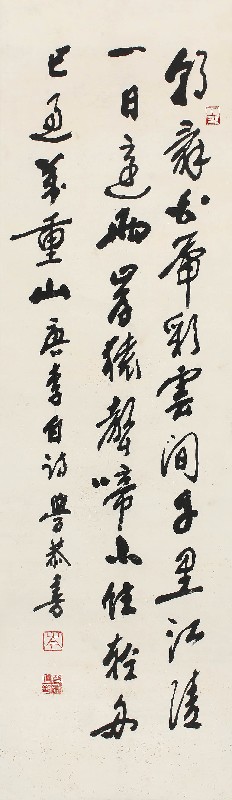 朝辞白帝彩雲間千里江陵
一日還兩岸猿聲啼不住輕舟
已過萬重山 唐李白詩 學恭書
岑